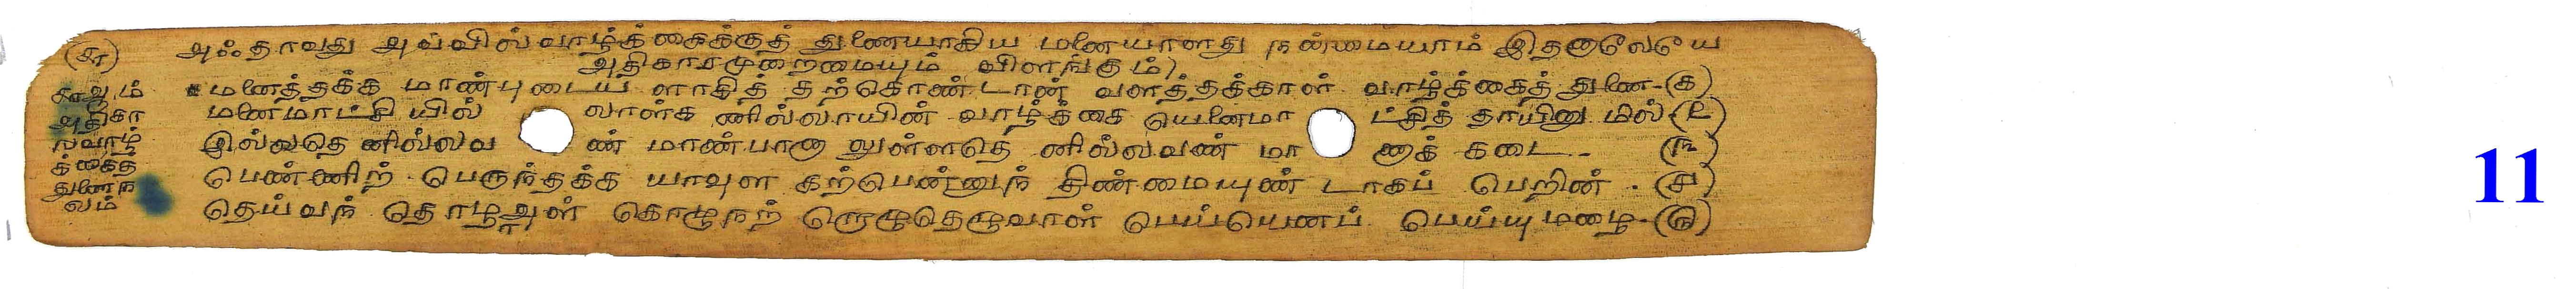 (௬) அஃதாவது அவ்வில்வாழ்க்கைக்குத் துணையாகிய மனையாளது நன்மையாம் இதனானேயே
அதிகாரமுறைமையும் விளங்கும்)
௬வும் அதிகா ல்வாழ் க்கைத் துணைந லம்
மனைத்தக்க மாண்புடைய ளாகித் தற்கொண்டான் வளத்தக்காள் வாழ்க்கைத் துணை-(௧)
மனைமாட்சியில் லாள்க ணில்லாயின் வாழ்க்கை யெனைமா ட்சித் தாயினு மில்-(௨)
இல்லதெ னில்லவ ண் மாண்பானா லுள்ளதெ னில்லவண் மா ணாக் கடை- (௩)
பெண்ணிற் பெருந்தக்க யாவுள கற்பெண்ணுந் திண்மையுண் டாகப் பெறின். (௪)
தெய்வந் தொழாஅள் கொழுநற் றொழுதெழுவாள் பெய்யெனப் பெய்யு மழை-(௫)
11